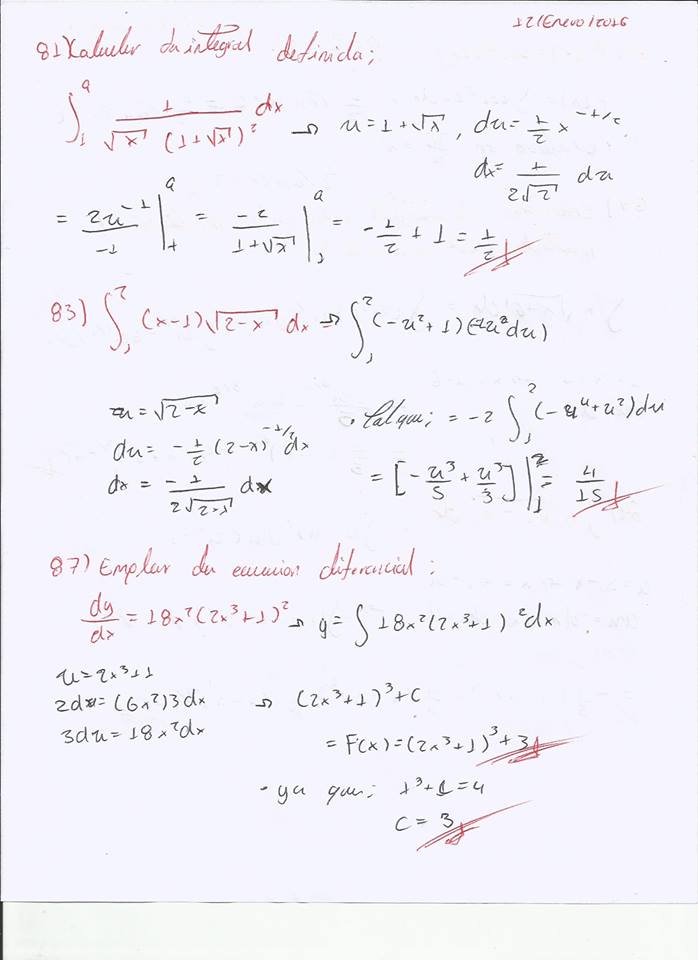 12/Enero/2016
81) Kalculer da integral definida;
∫₁^9 1/(√x (1+√x)²) dx ⇒ u = 1+√x, du = 1/2 x^(-1/2)
dx = 1/(2√2) du
= 2u⁻¹/-1 |₁^9 = -2/(1+√x) |₁^9 = -1/2 + 1 = 1/2
83) ∫₁² (x-1)√(2-x) dx ⇒ ∫₁² (-u²+1)(-2u²du)
u = √(2-x)
du = -1/2 (2-x)^(-1/2) dx
dx = -1/(2√(2-x)) dx
· = -2 ∫₁² (-u⁴+u²)du
= [-u³/5 + u³/3] |₁² = 4/15
87) Emplar da ecuacion diferencial:
dy/dx = 18x²(2x³+1)² ⇒ y = ∫ 18x²(2x³+1)² dx
u = 2x³+1
2du = (6x²)3dx ⇒ (2x³+1)³+C
3du = 18x²dx
= F(x) = (2x³+1)³+3
· ya que; 1³+C = 4
C = 3